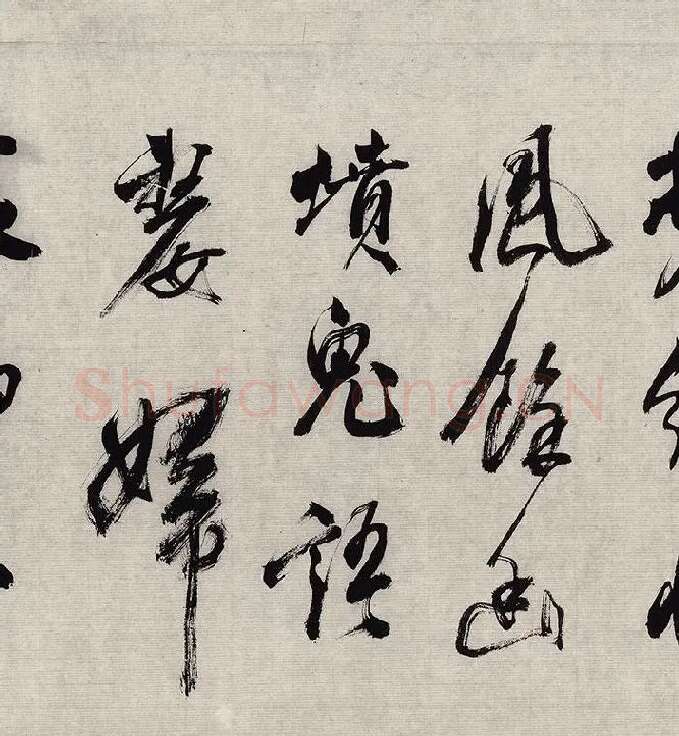 風餘幽
墳鬼語
嫠婦
Shufawang.CN